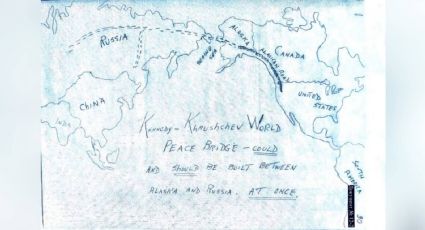 RUSSIA
ALASKA
ALASKAN ROAD
CANADA
BERING SEA
UNITED
STATES
CHINA
INDIA
KENNEDY - KHRUSHCHEV WORLD
PEACE BRIDGE - COULD
AND SHOULD BE BUILT BETWEEN
ALASKA AND RUSSIA. AT ONCE.
SOUTH
AMERICA